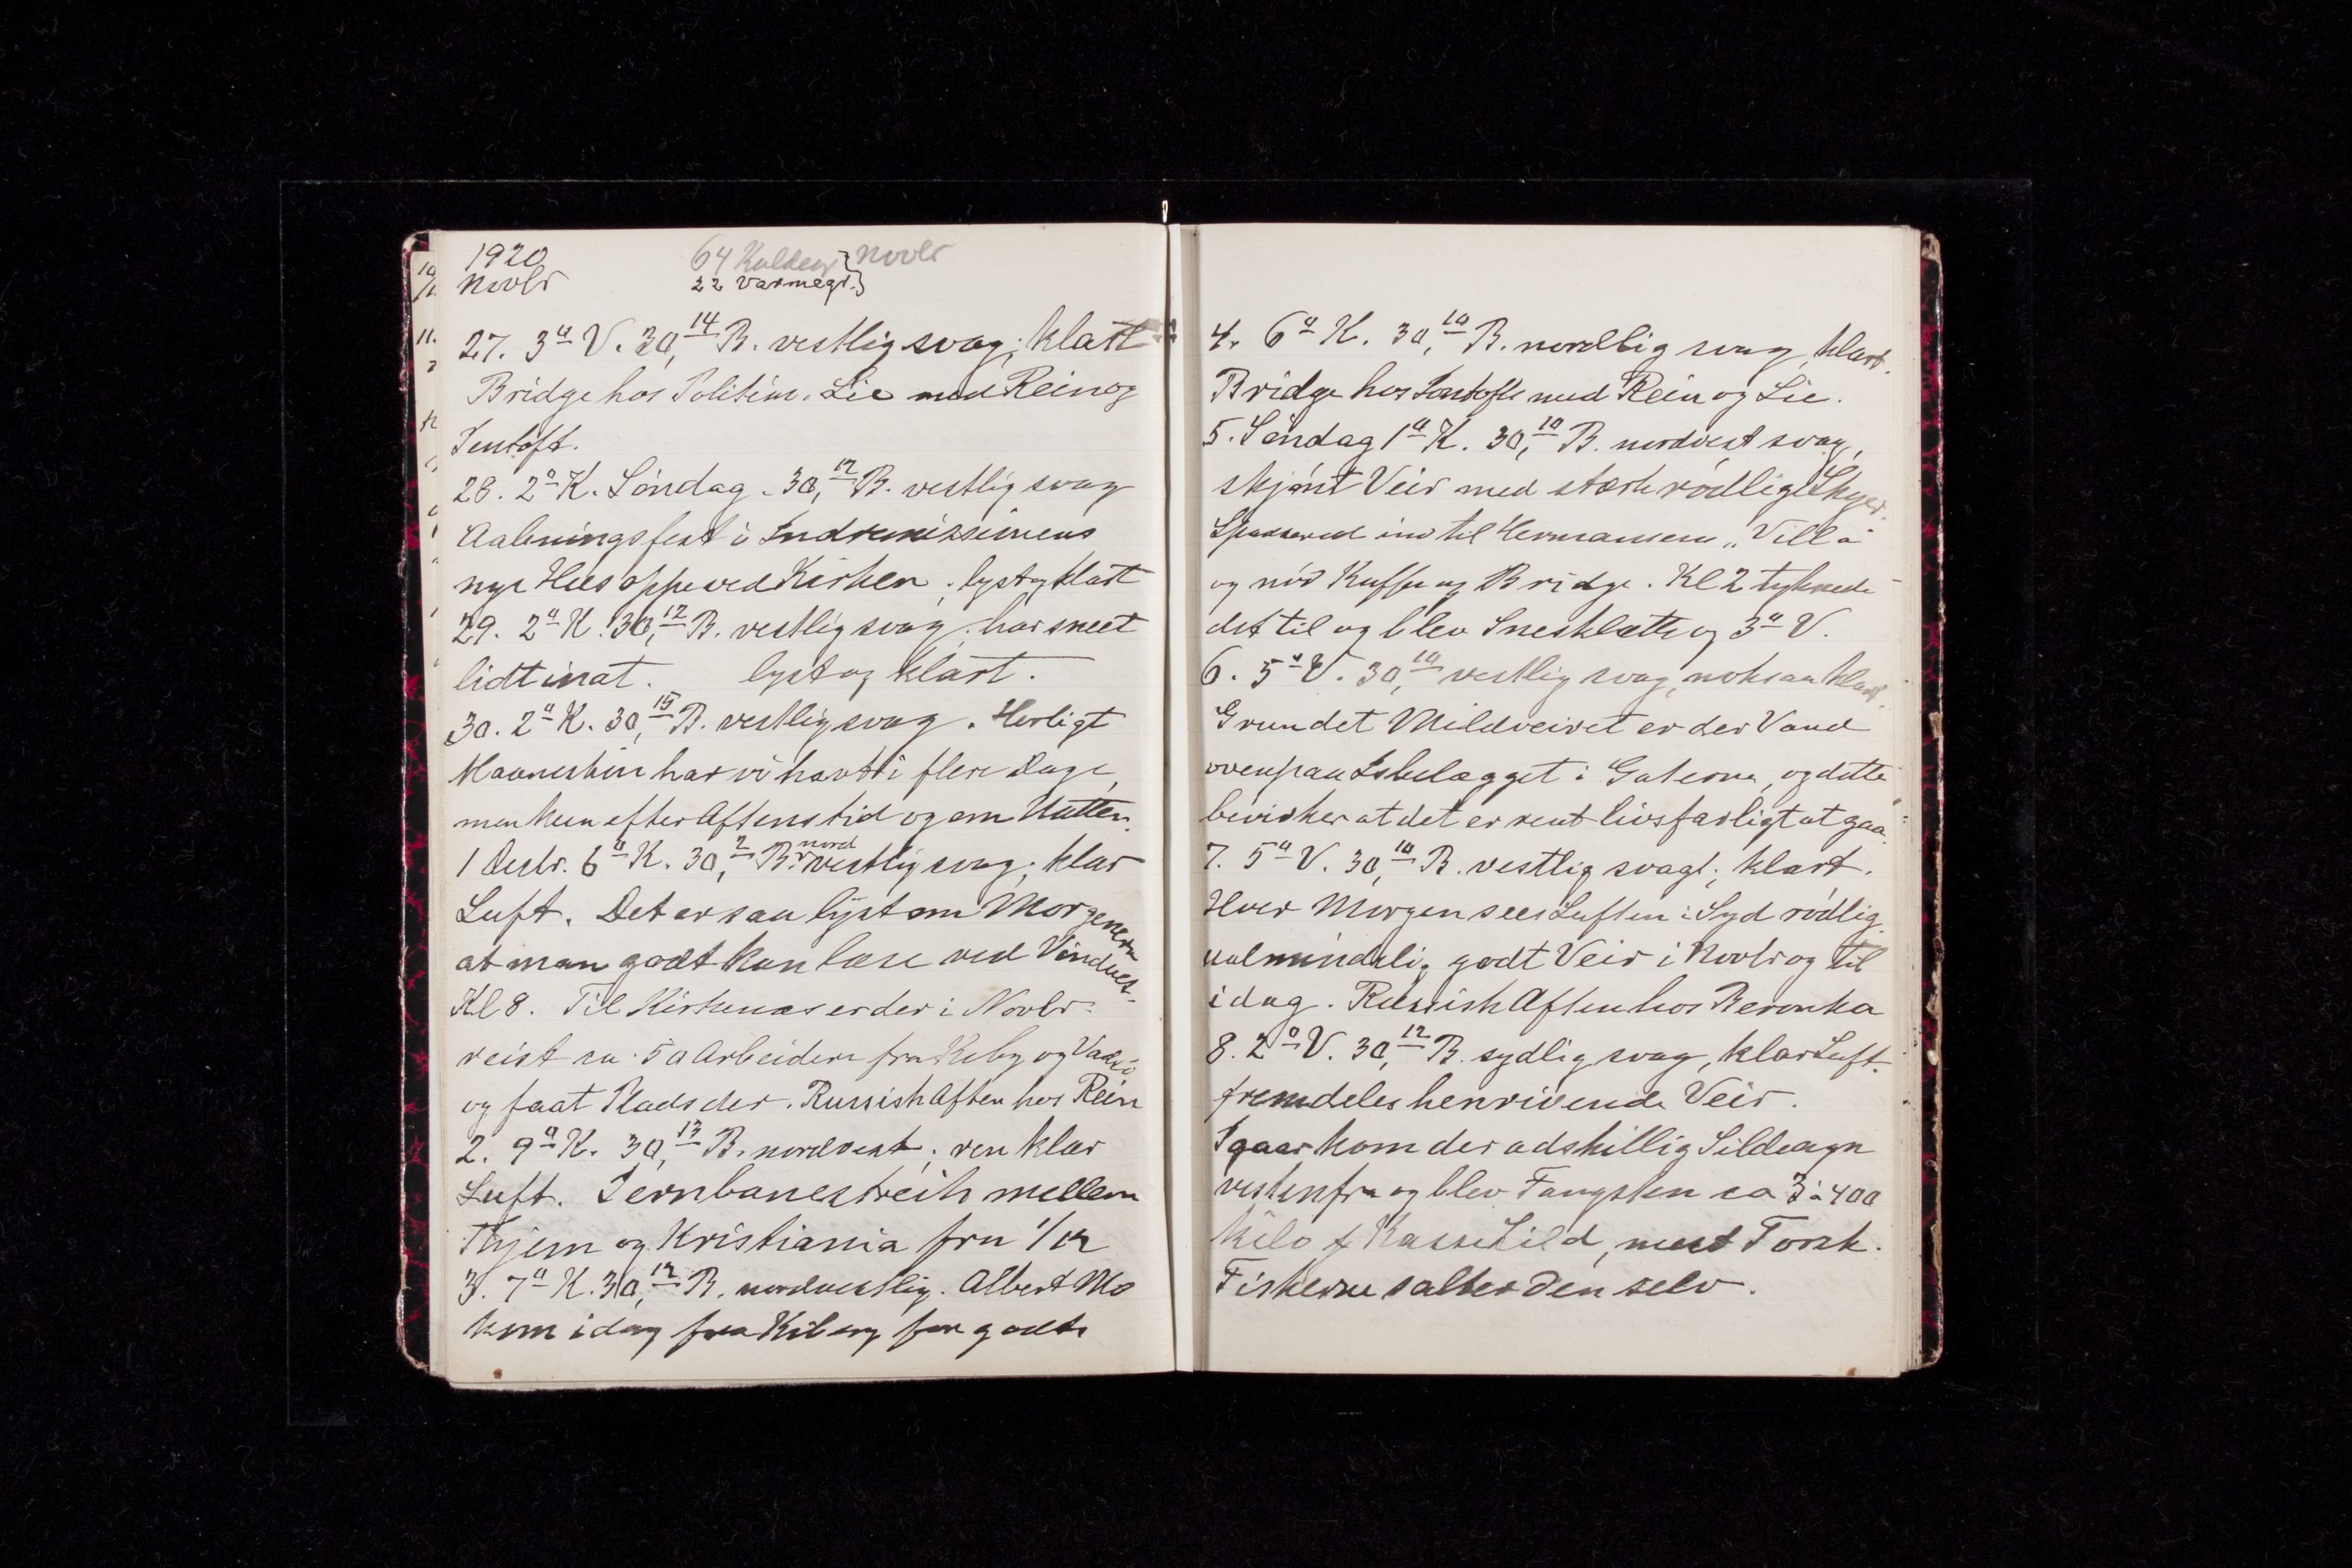 1920
Novbr
64 Kuldegr } Novbr
22 Varmegr. }
27. 3° V. 30,14 B. vestlig svag; klart
Bridge hos Politim. Lie med Rein og
Jentoft.
28. 2° K. Søndag. 30,12 B. vestlig svag
Aabningsfest i Indremissionens
nye Hus oppe ved Kirken; lyst og klart
29. 2° K. 30,12 B. vestlig svag; har sneet
lidt inat. lyst og klart.
30. 2° K. 30,15 B. vestlig svag. Herligt
Maaneskin har vi havt i flere Dage,
men kun efter Aftenstid og om Natten.
1 Desbr. 6° K. 30,2 B. nordvestlig svag; klar
Luft. Det er saa lyst om Morgenen
at man godt kan læse ved Vinduet
Kl 8. Til Kirkenæs er der i Novbr
reist ca. 50 Arbeidere fra Kiby og Vadsø
og faat Plads der. Russisk Aften hos Rein
2. 9° K. 30,13 B. nordvest; ren klar
Luft. Jernbanestreik mellem
Thjem og Kristiania fra 1/12
3. 7° K. 30,12 B. nordvestlig. Albert Mo
kom idag fra Kiberg for godt
4. 6° K. 30,10 B. nordlig svag, klart.
Bridge hos Jentoft med Rein og Lie.
5. Søndag 1° K. 30,10 B. nordvest svag,
skjønt Veir med stærk rødlige Skyer.
Spadsered ind til Hermansens „Villa"
og nød Kaffe og Bridge. Kl 2 tyknede
det til og blev Sneslette og 3° V.
6. 5° V. 30,10 vestlig svag, noksaa klart.
Grundet Mildveiret er der Vand
ovenpaa Isbelægget i Gaterne, og dette
bevirker at det er rent livsfarligt at gaa.
7. 5° V. 30,10 B. vestlig svagt; klart.
Hver Morgen sees Luften i Syd rødlig.
ualmindelig godt Veir i Novbr og til
idag. Russisk Aften hos Beronka
8. 2° V. 30,12 B. sydlig svag, klar Luft.
fremdeles henrivende Veir.
Igaar kom der adskillig Sildeagn
vestenfra og blev Fangsten ca 3 à 400
Kilo f Kasse Sild, mest Torsk.
Fiskerne salter den selv.